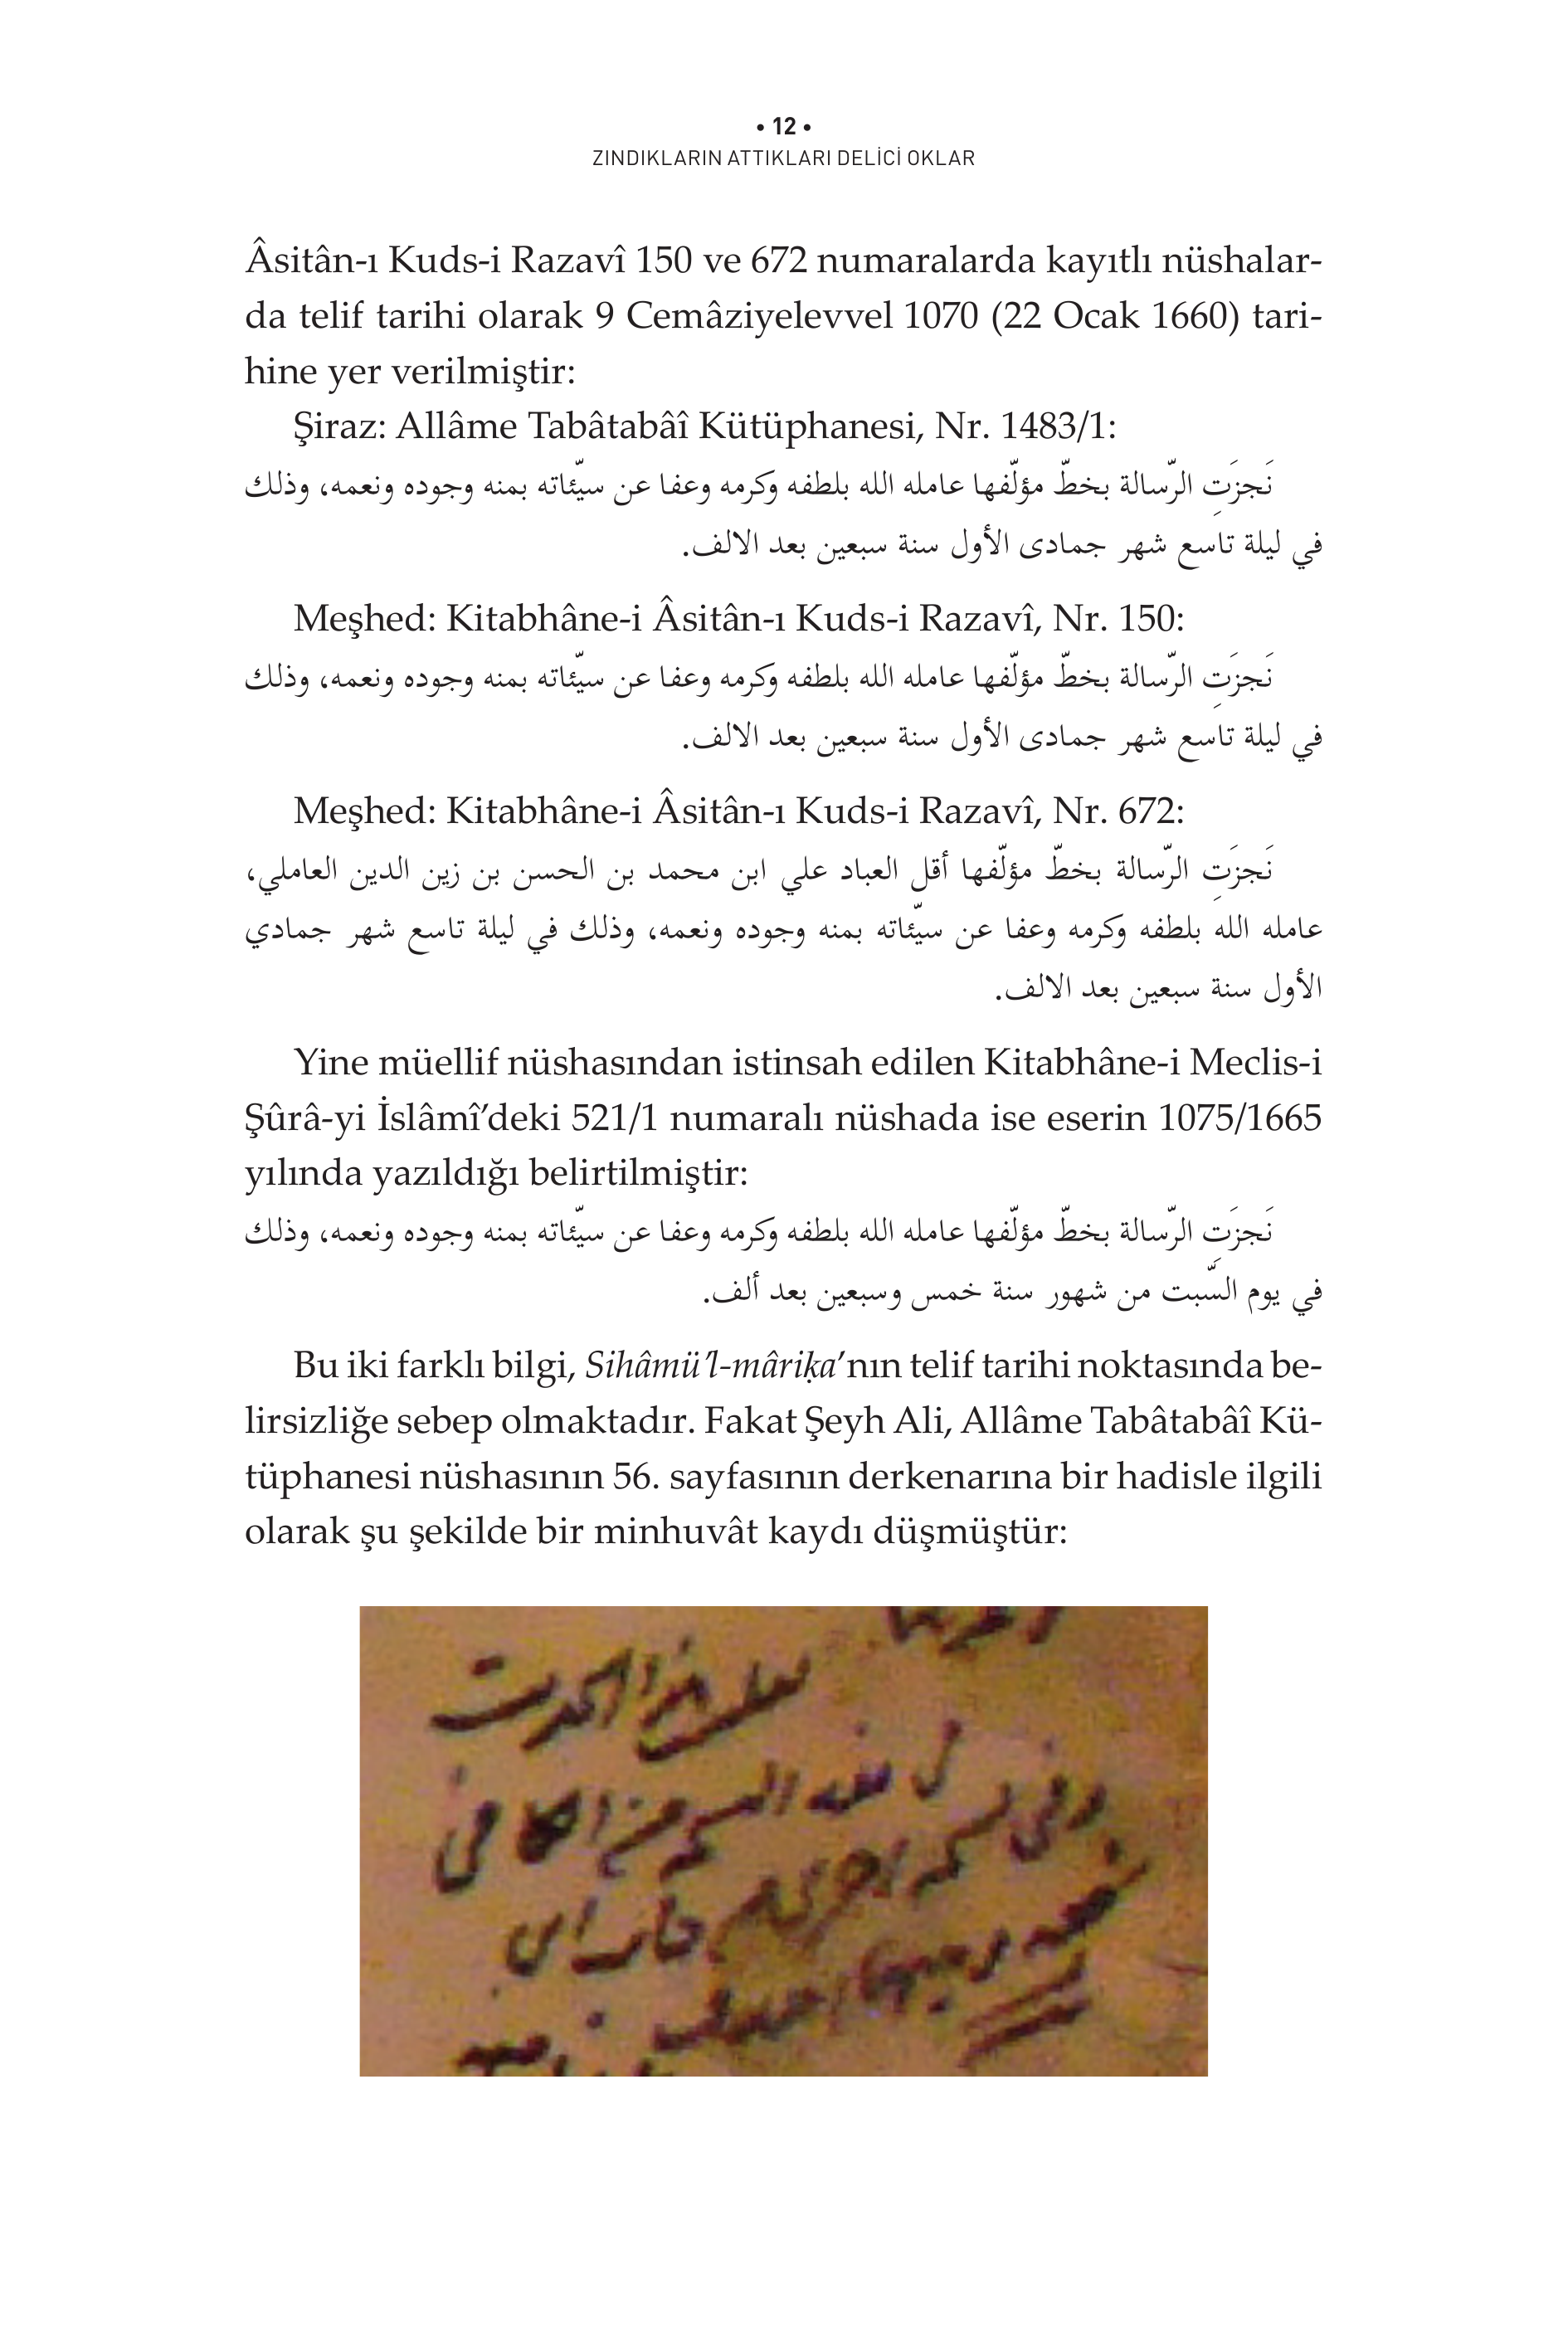 • 12 •
ZINDIKLARIN ATTIKLARI DELİCİ OKLAR
Âsitân-ı Kuds-i Razavî 150 ve 672 numaralarda kayıtlı nüshalar-
da telif tarihi olarak 9 Cemâziyelevvel 1070 (22 Ocak 1660) tari-
hine yer verilmiştir:
Şiraz: Allâme Tabâtabâî Kütüphanesi, Nr. 1483/1:
نَجزَتِ الرّسالة بخطّ مؤلّفها عامله الله بلطفه وكرمه وعفا عن سيّئاته بمنه وجوده ونعمه، وذلك
في ليلة تاسع شهر جمادى الأول سنة سبعين بعد الالف.
Meşhed: Kitabhâne-i Âsitân-ı Kuds-i Razavî, Nr. 150:
نَجزَتِ الرّسالة بخطّ مؤلّفها عامله الله بلطفه وكرمه وعفا عن سيّئاته بمنه وجوده ونعمه، وذلك
في ليلة تاسع شهر جمادى الأول سنة سبعين بعد الالف.
Meşhed: Kitabhâne-i Âsitân-ı Kuds-i Razavî, Nr. 672:
نَجزَتِ الرّسالة بخطّ مؤلّفها أقل العباد علي ابن محمد بن الحسن بن زين الدين العاملي،
عامله الله بلطفه وكرمه وعفا عن سيّئاته بمنه وجوده ونعمه، وذلك في ليلة تاسع شهر جمادي
الأول سنة سبعين بعد الالف.
Yine müellif nüshasından istinsah edilen Kitabhâne-i Meclis-i
Şûrâ-yi İslâmî’deki 521/1 numaralı nüshada ise eserin 1075/1665
yılında yazıldığı belirtilmiştir:
نَجزَتِ الرّسالة بخطّ مؤلّفها عامله الله بلطفه وكرمه وعفا عن سيّئاته بمنه وجوده ونعمه، وذلك
في يوم السّبت من شهور سنة خمس وسبعين بعد ألف.
Bu iki farklı bilgi, Sihâmü’l-mâriḳa’nın telif tarihi noktasında be-
lirsizliğe sebep olmaktadır. Fakat Şeyh Ali, Allâme Tabâtabâî Kü-
tüphanesi nüshasının 56. sayfasının derkenarına bir hadisle ilgili
olarak şu şekilde bir minhuvât kaydı düşmüştür: